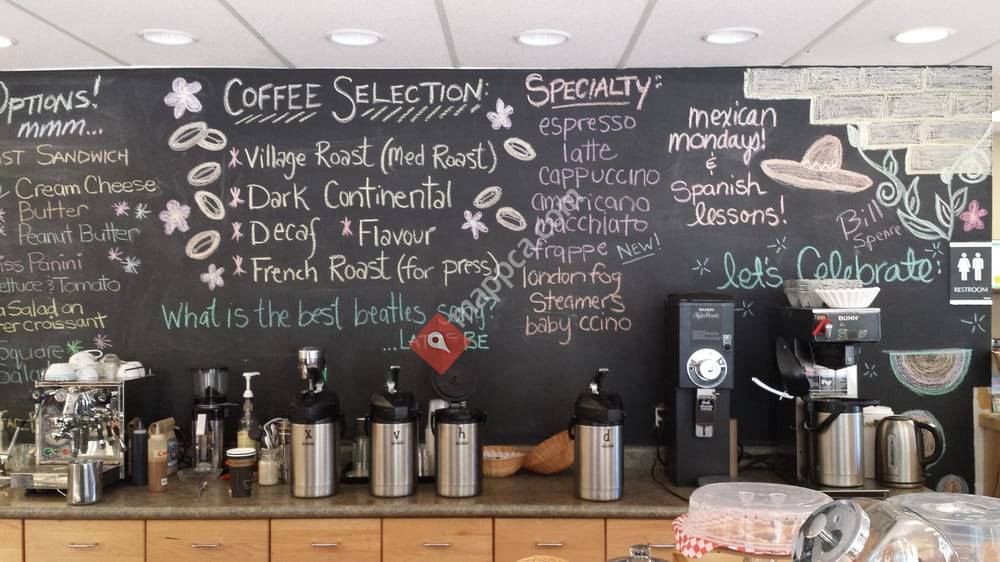 Options!
mmm...
Sandwich
Cream Cheese
Butter
Peanut Butter
Panini
Lettuce & Tomato
Salad on
croissant
Square
Salad
Coffee Selection:
Village Roast (Med Roast)
Dark Continental
Decaf
Flavour
French Roast (for press)
What is the best beatles song?
Specialty:
espresso
latte
cappuccino
americano
macchiato
frappe NEW!
london fog
Steamers
babyccino
mexican
monday!
&
Spanish
lessons!
Bill
let's Celebrate
RESTROOM
BUNN
x
v
h
d